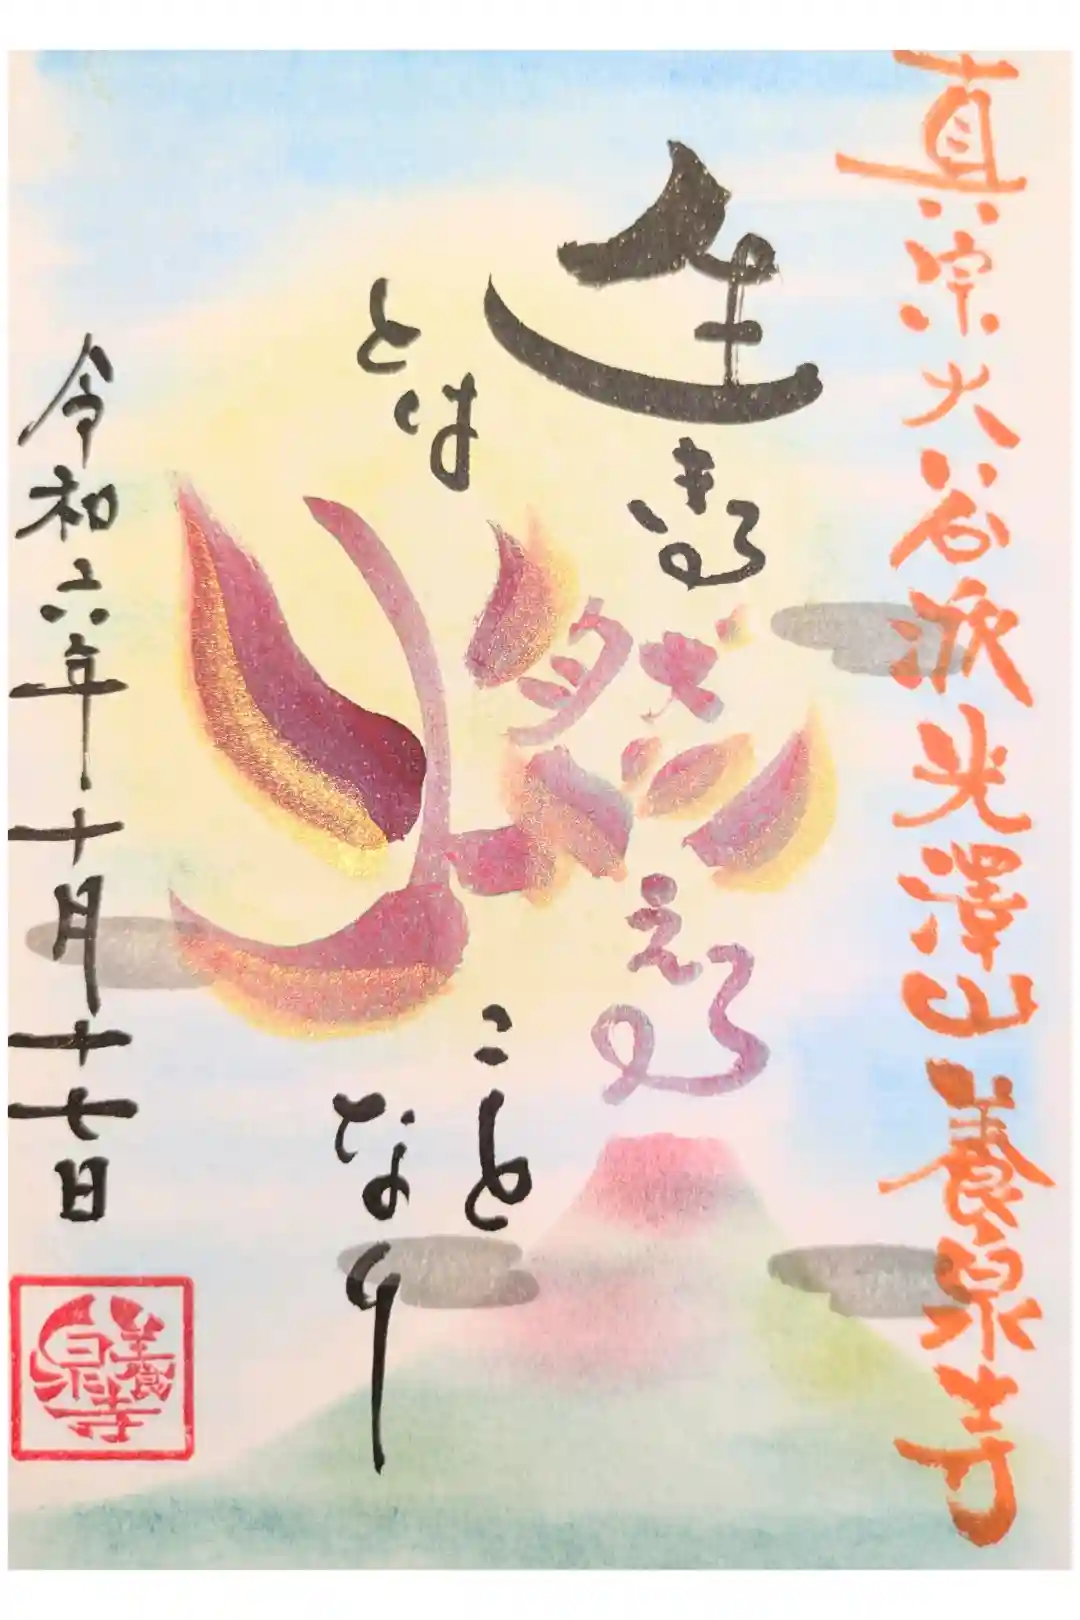 真宗大谷派光澤山養泉寺
生きる
とは
燃える
こと
なり
令和六年十月十七日
養泉寺